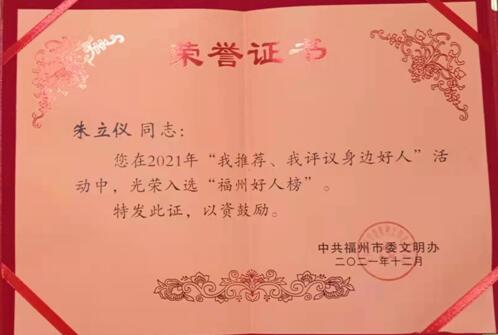 荣誉证书
朱立仪 同志：
您在2021年“我推荐、我评议身边好人”活
动中，光荣入选“福州好人榜”。
特发此证，以资鼓励。
中共福州市委文明办
二〇二一年十二月